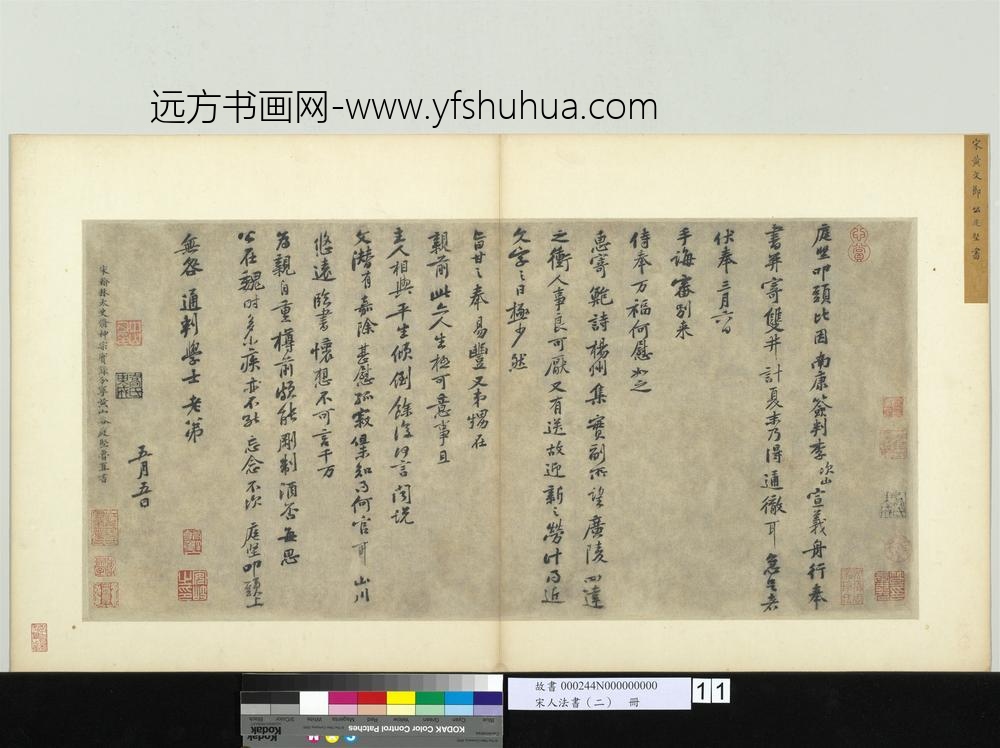 远方书画网-www.yfshuhua.com
宋黄文節公庭堅書
庭堅叩頭比因南康簽判李次山宣義舟行奉
書并寄雙井計夏末乃得通徹耳急足者
伏奉三月六日
手誨審別来
侍奉万福何慰如之
惠寄鮑詩楊州集實副所望廣陵四達
之衝人事良可厭又有送故迎新之勞計得近
文字之日極少然
旨甘之奉易豐又弟甥在
親前此亦人生極可意事且
主人相與平生傾倒餘復何言聞説
文潜有嘉除甚慰孤寂但未知得何官耳山川
悠遠臨書懷想不可言千万
為親自重樽前頗能剛制酒否無思
公在魏時多小疾亦不能忘念不次庭堅叩頭上
無咎通判學士老弟
五月五日
故書 000244N000000000
宋人法書（二） 冊
11
Blue
Cyan
Green
Yellow
Red
Magenta
White
3/Color
Black
KODAK Color Control Patches
Kodak